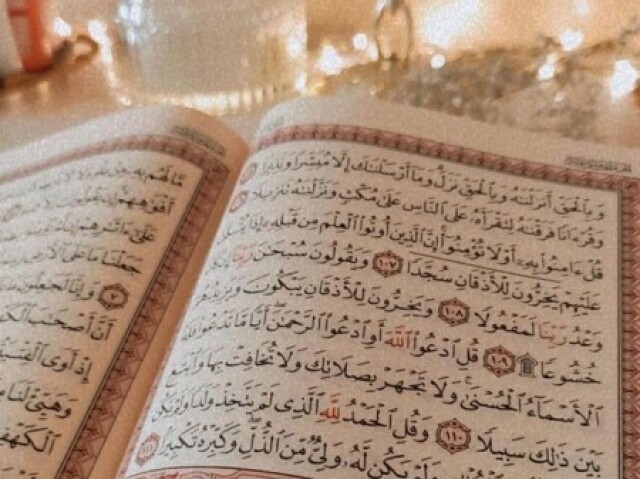 وَبِٱلْحَقِّ أَنزَلْنَٰهُ وَبِٱلْحَقِّ نَزَلَ وَمَآ أَرْسَلْنَٰكَ إِلَّا مُبَشِّرًا وَنَذِيرًا
وَقُرْءَانًا فَرَقْنَٰهُ لِتَقْرَأَهُۥ عَلَى ٱلنَّاسِ عَلَىٰ مُكْثٍ وَنَزَّلْنَٰهُ تَنزِيلًا
قُلْ ءَامِنُوا۟ بِهِۦٓ أَوْ لَا تُؤْمِنُوٓا۟ إِنَّ ٱلَّذِينَ أُوتُوا۟ ٱلْعِلْمَ مِن قَبْلِهِۦٓ إِذَا
عَلَيْهِمْ يَخِرُّونَ لِلْأَذْقَانِ سُجَّدًا ١٠٧ وَيَقُولُونَ سُبْحَٰنَ رَبِّنَآ
وَعْدُ رَبِّنَا لَمَفْعُولًا ١٠٨ وَيَخِرُّونَ لِلْأَذْقَانِ يَبْكُونَ وَيَزِيدُهُمْ
خُشُوعًا ۩ ١٠٩ قُلِ ٱدْعُوا۟ ٱللَّهَ أَوِ ٱدْعُوا۟ ٱلرَّحْمَٰنَ أَيًّا مَّا تَدْعُوا۟ فَلَهُ
ٱلْأَسْمَآءُ ٱلْحُسْنَىٰ وَلَا تَجْهَرْ بِصَلَاتِكَ وَلَا تُخَافِتْ بِهَا وَٱبْتَغِ
بَيْنَ ذَٰلِكَ سَبِيلًا ١١٠ وَقُلِ ٱلْحَمْدُ لِلَّهِ ٱلَّذِى لَمْ يَتَّخِذْ وَلَدًا وَلَمْ يَكُن
وَلَمْ يَكُن لَّهُۥ وَلِىٌّ مِّنَ ٱلذُّلِّ وَكَبِّرْهُ تَكْبِيرًۢا ١١١
مَّا لَهُم بِهِۦ مِنْ
أَفْوَٰهِهِمْ إِن
عَلَىٰٓ ءَاثَٰرِهِمْ إِن
جَعَلْنَا مَا عَلَى ٱلْأَرْضِ
وَإِنَّا لَجَٰعِلُونَ
أَنَّ أَصْحَٰبَ
إِذْ أَوَى ٱلْفِتْيَةُ
وَهَيِّئْ لَنَا
ٱلْكَهْفِ